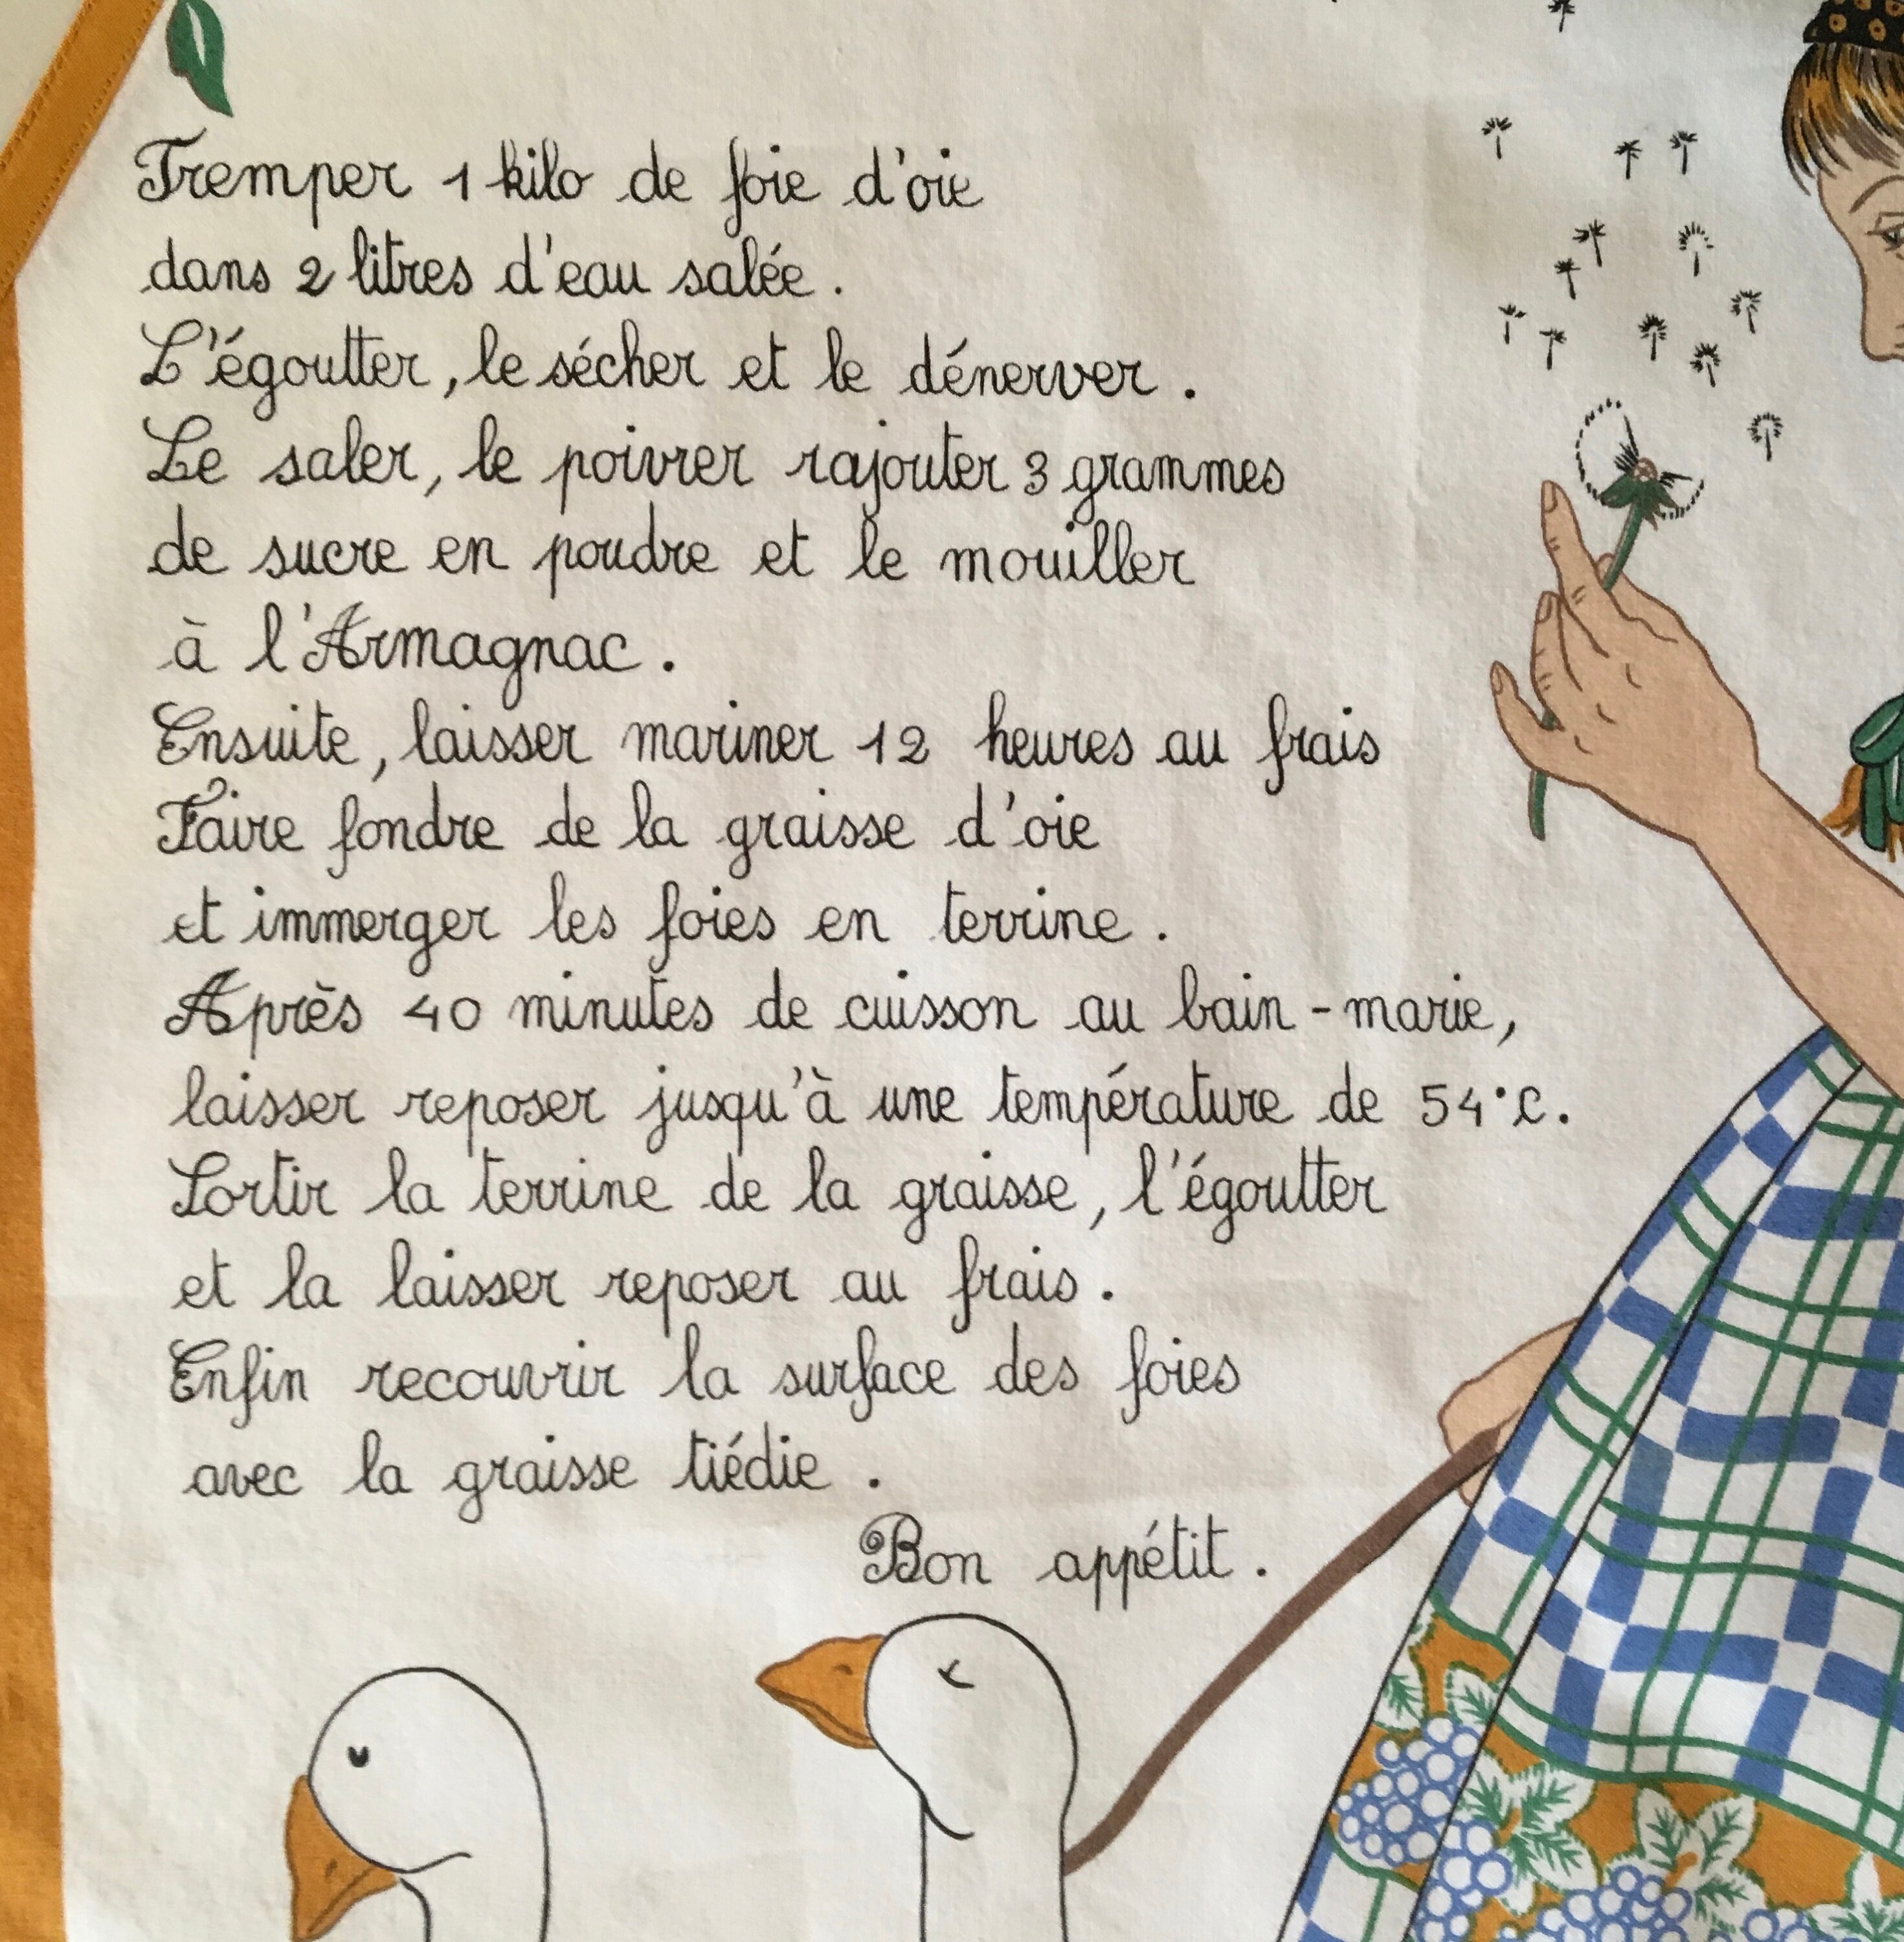 Tremper 1 kilo de foie d'oie
dans 2 litres d'eau salée.
L'égoutter, le sécher et le dénerver.
Le saler, le poivrer rajouter 3 grammes
de sucre en poudre et le mouiller
à l'Armagnac.
Ensuite, laisser mariner 12 heures au frais
Faire fondre de la graisse d'oie
et immerger les foies en terrine.
Après 40 minutes de cuisson au bain-marie,
laisser reposer jusqu'à une température de 54°C.
Sortir la terrine de la graisse, l'égoutter
et la laisser reposer au frais.
Enfin recouvrir la surface des foies
avec la graisse tiédie.
Bon appétit.